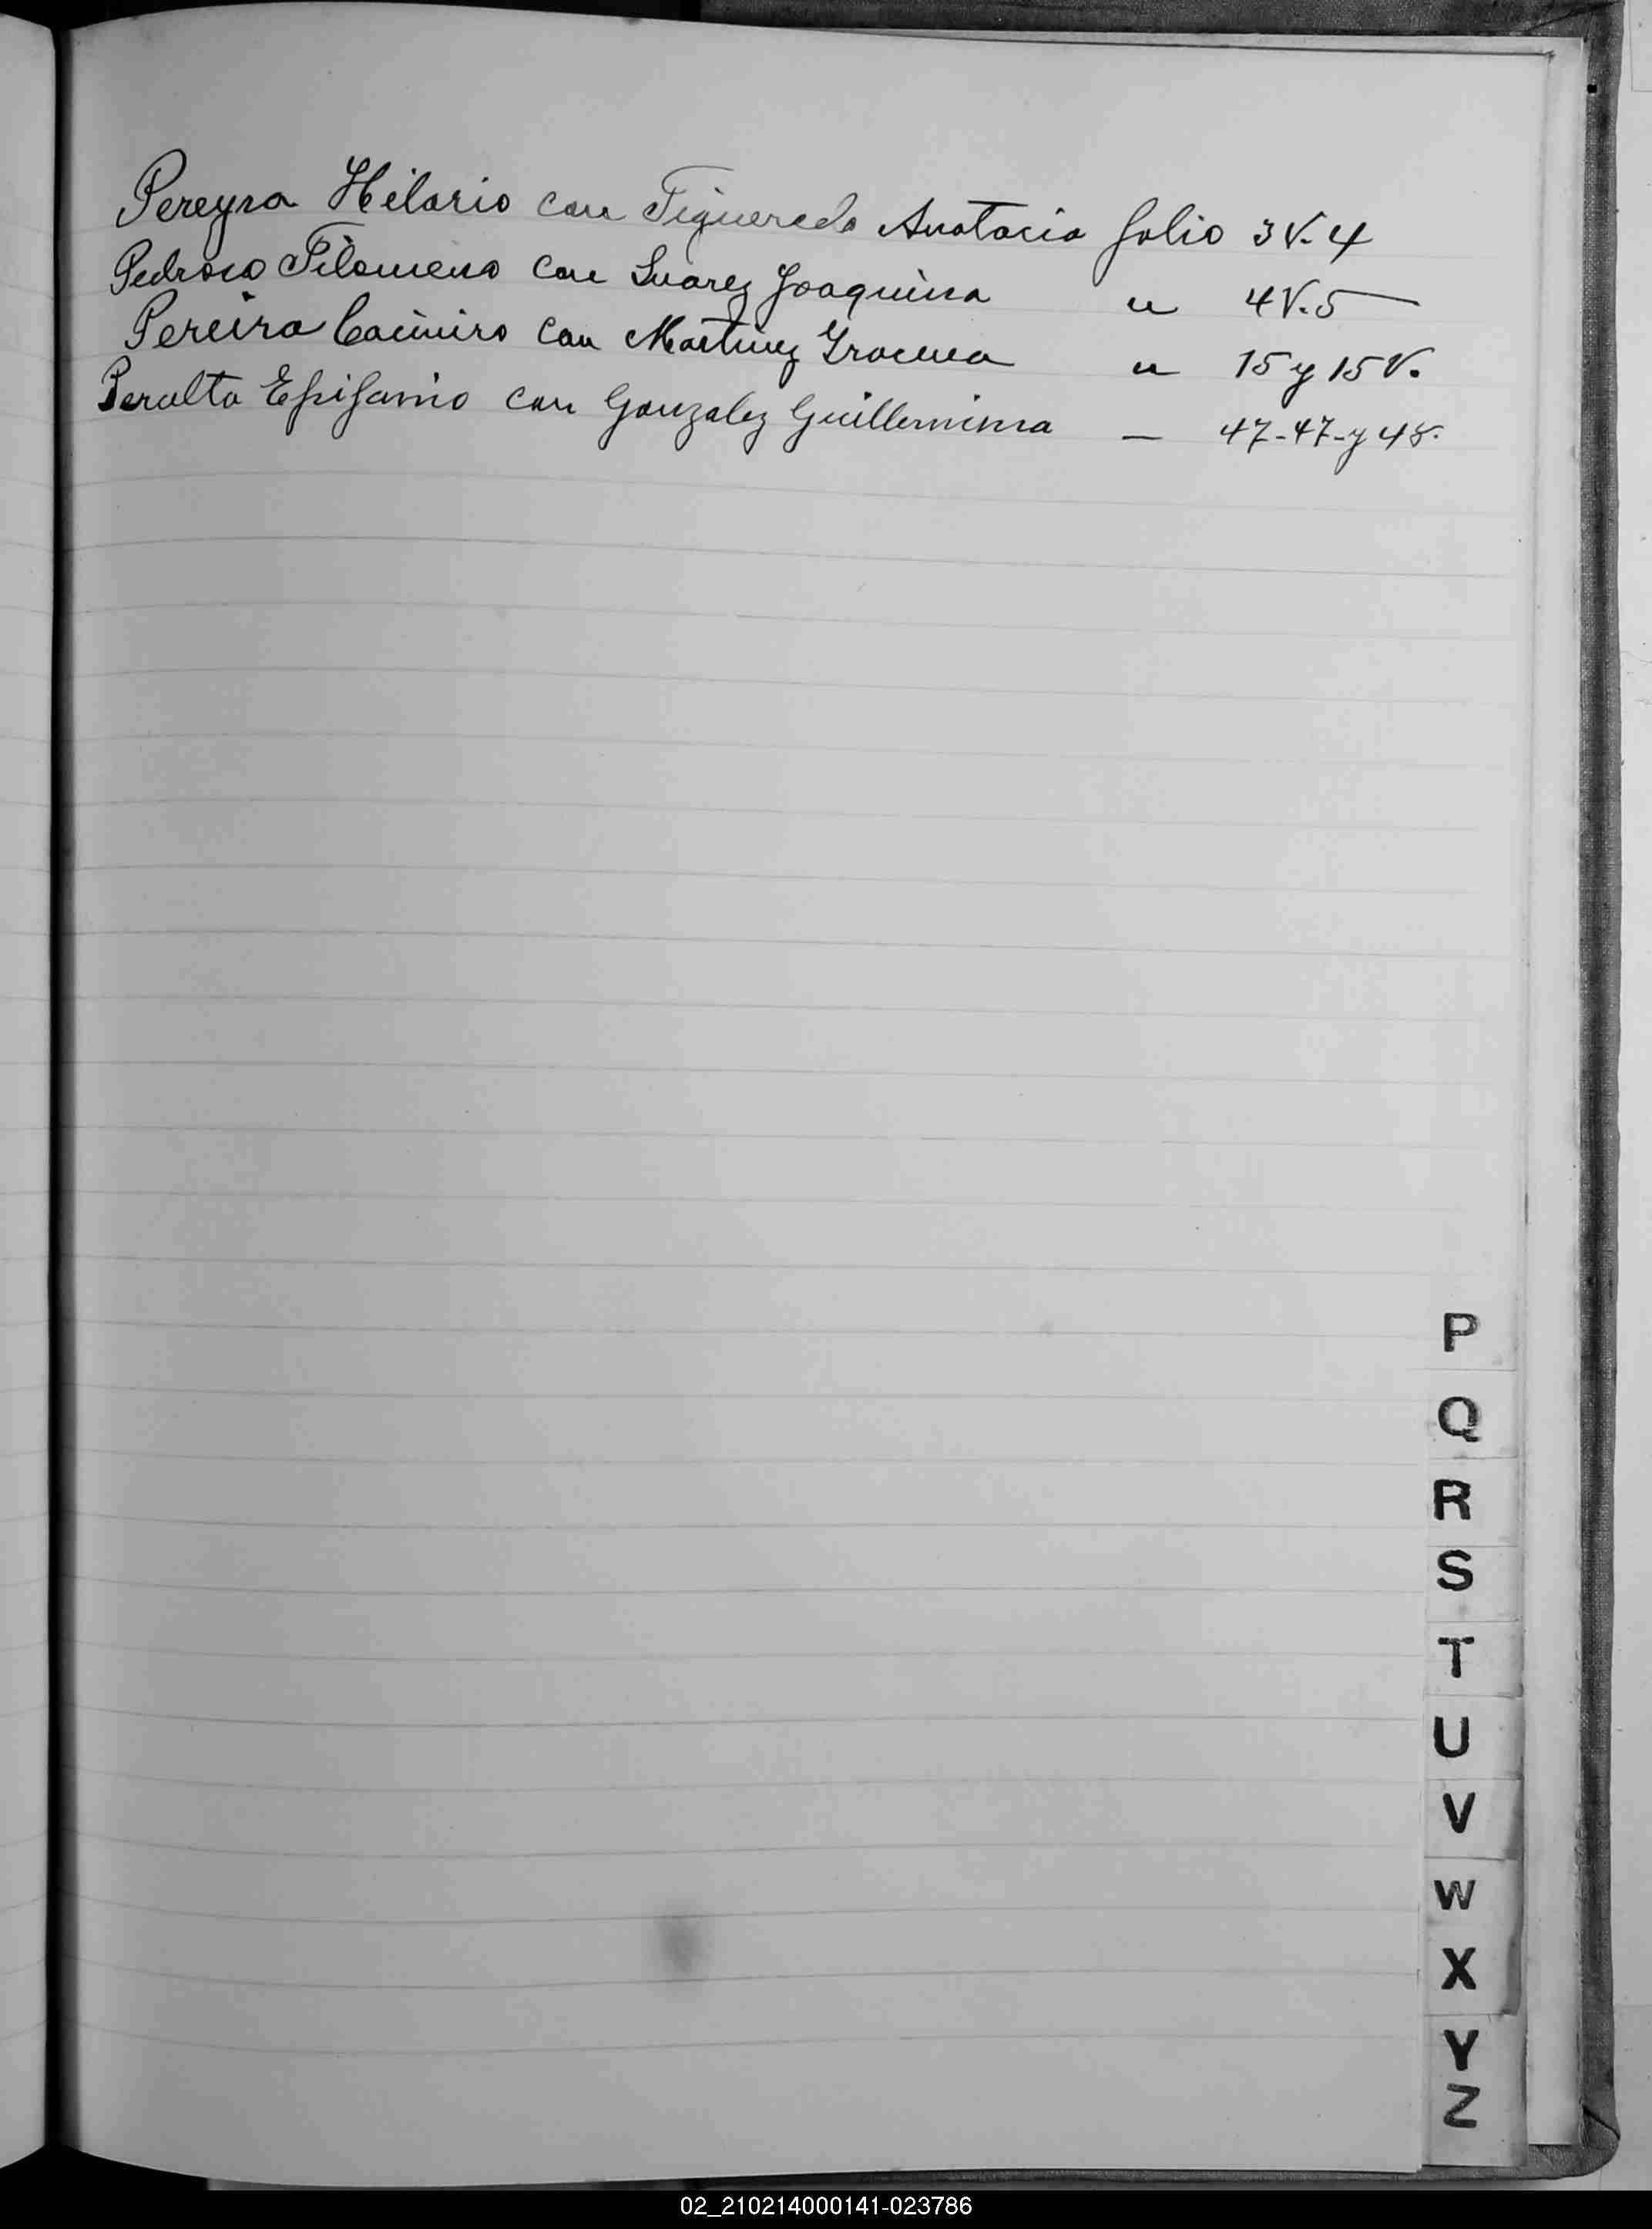 Pereyra Hilario con Figueredo Anatacia folio 3 V. 4
Pedroso Filomeno con Suarez Joaquina " 4 V. 5
Pereira Casimiro con Martinez " 15 y 15 V.
Peralta Epifanio con Gonzalez Guillermina — 47-47-y 48.
P
Q
R
S
T
U
V
W
X
Y
Z
02_210214000141-023786